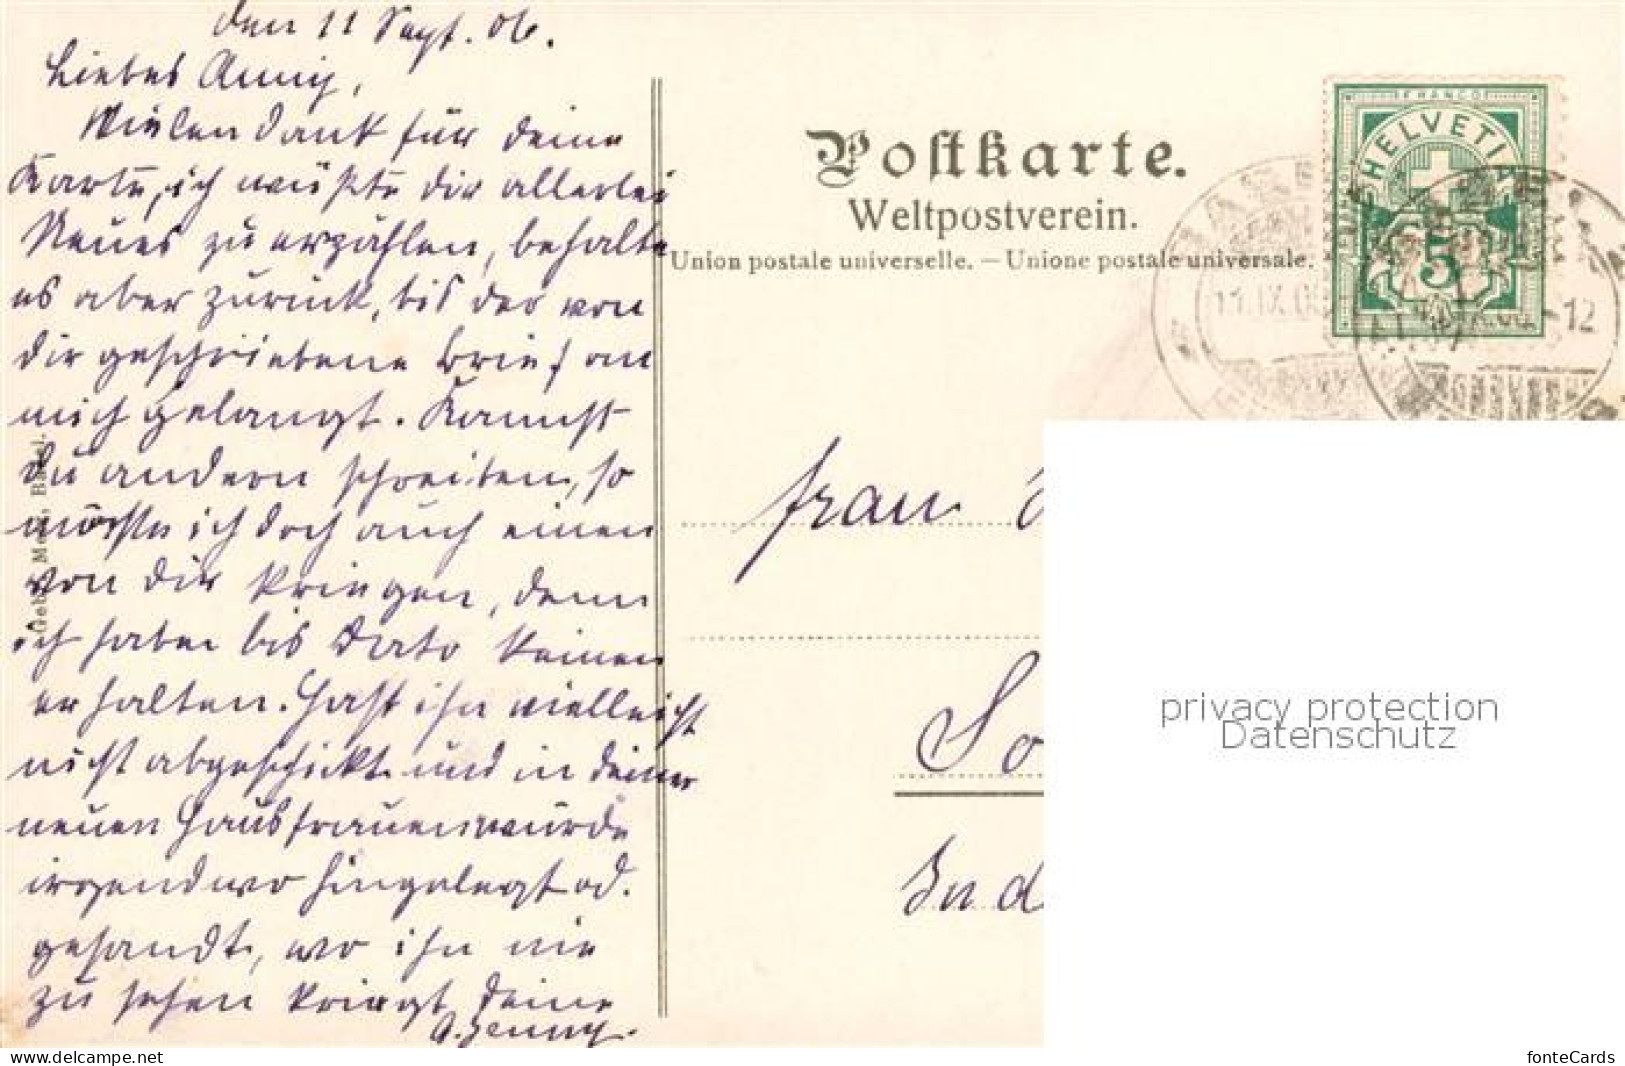 den 11 Sept. 06.
Liebes Anny,
Vielen Dank für deine
Karte, ich wüßte dir allerlei
Neues zu erzählen, behalte
es aber zurück, bis der von
dir geschriebene Brief an
mich gelangt. Kannst
du andern schreiben, so
möchte ich doch auch einen
von dir kriegen, denn
ich habe bis dato keinen
erhalten. Hast ihn vielleicht
nicht abgeschickt und in deiner
neuen Hausfrauenwürde
irgendwo hingelegt od.
gesandt, wo ihn nie
zu sehen kriegt deine
A. Jenny.
Gebr. M Basel.
Postkarte.
Weltpostverein.
Union postale universelle. — Unione postale universale.
FRANCO
HELVETIA
5
11.IX.06
-12
Frau
So
In d
privacy protection
Datenschutz
All copyrights reserved to the owner
fonteCards